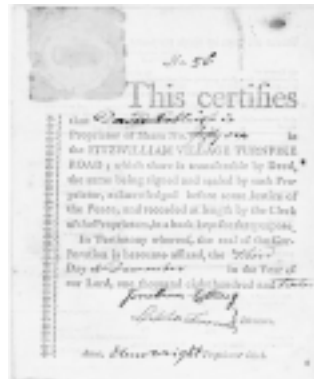 No. 56
This certifies
that David
Proprietor of Share No. fifty six in
the FITZWILLIAM VILLAGE TURNPIKE
ROAD; which share is transferable by Deed,
the same being signed and sealed by such Pro-
prietor, acknowledged before some Justice of
the Peace, and recorded at length by the Clerk
of said Proprietors, in a book kept for that purpose.
In Testimony whereof, the seal of the Cor-
poration is hereunto affixed, the third
Day of December in the Year of
our Lord, one thousand eight hundred and
Attest, Proprietors' Clerk.